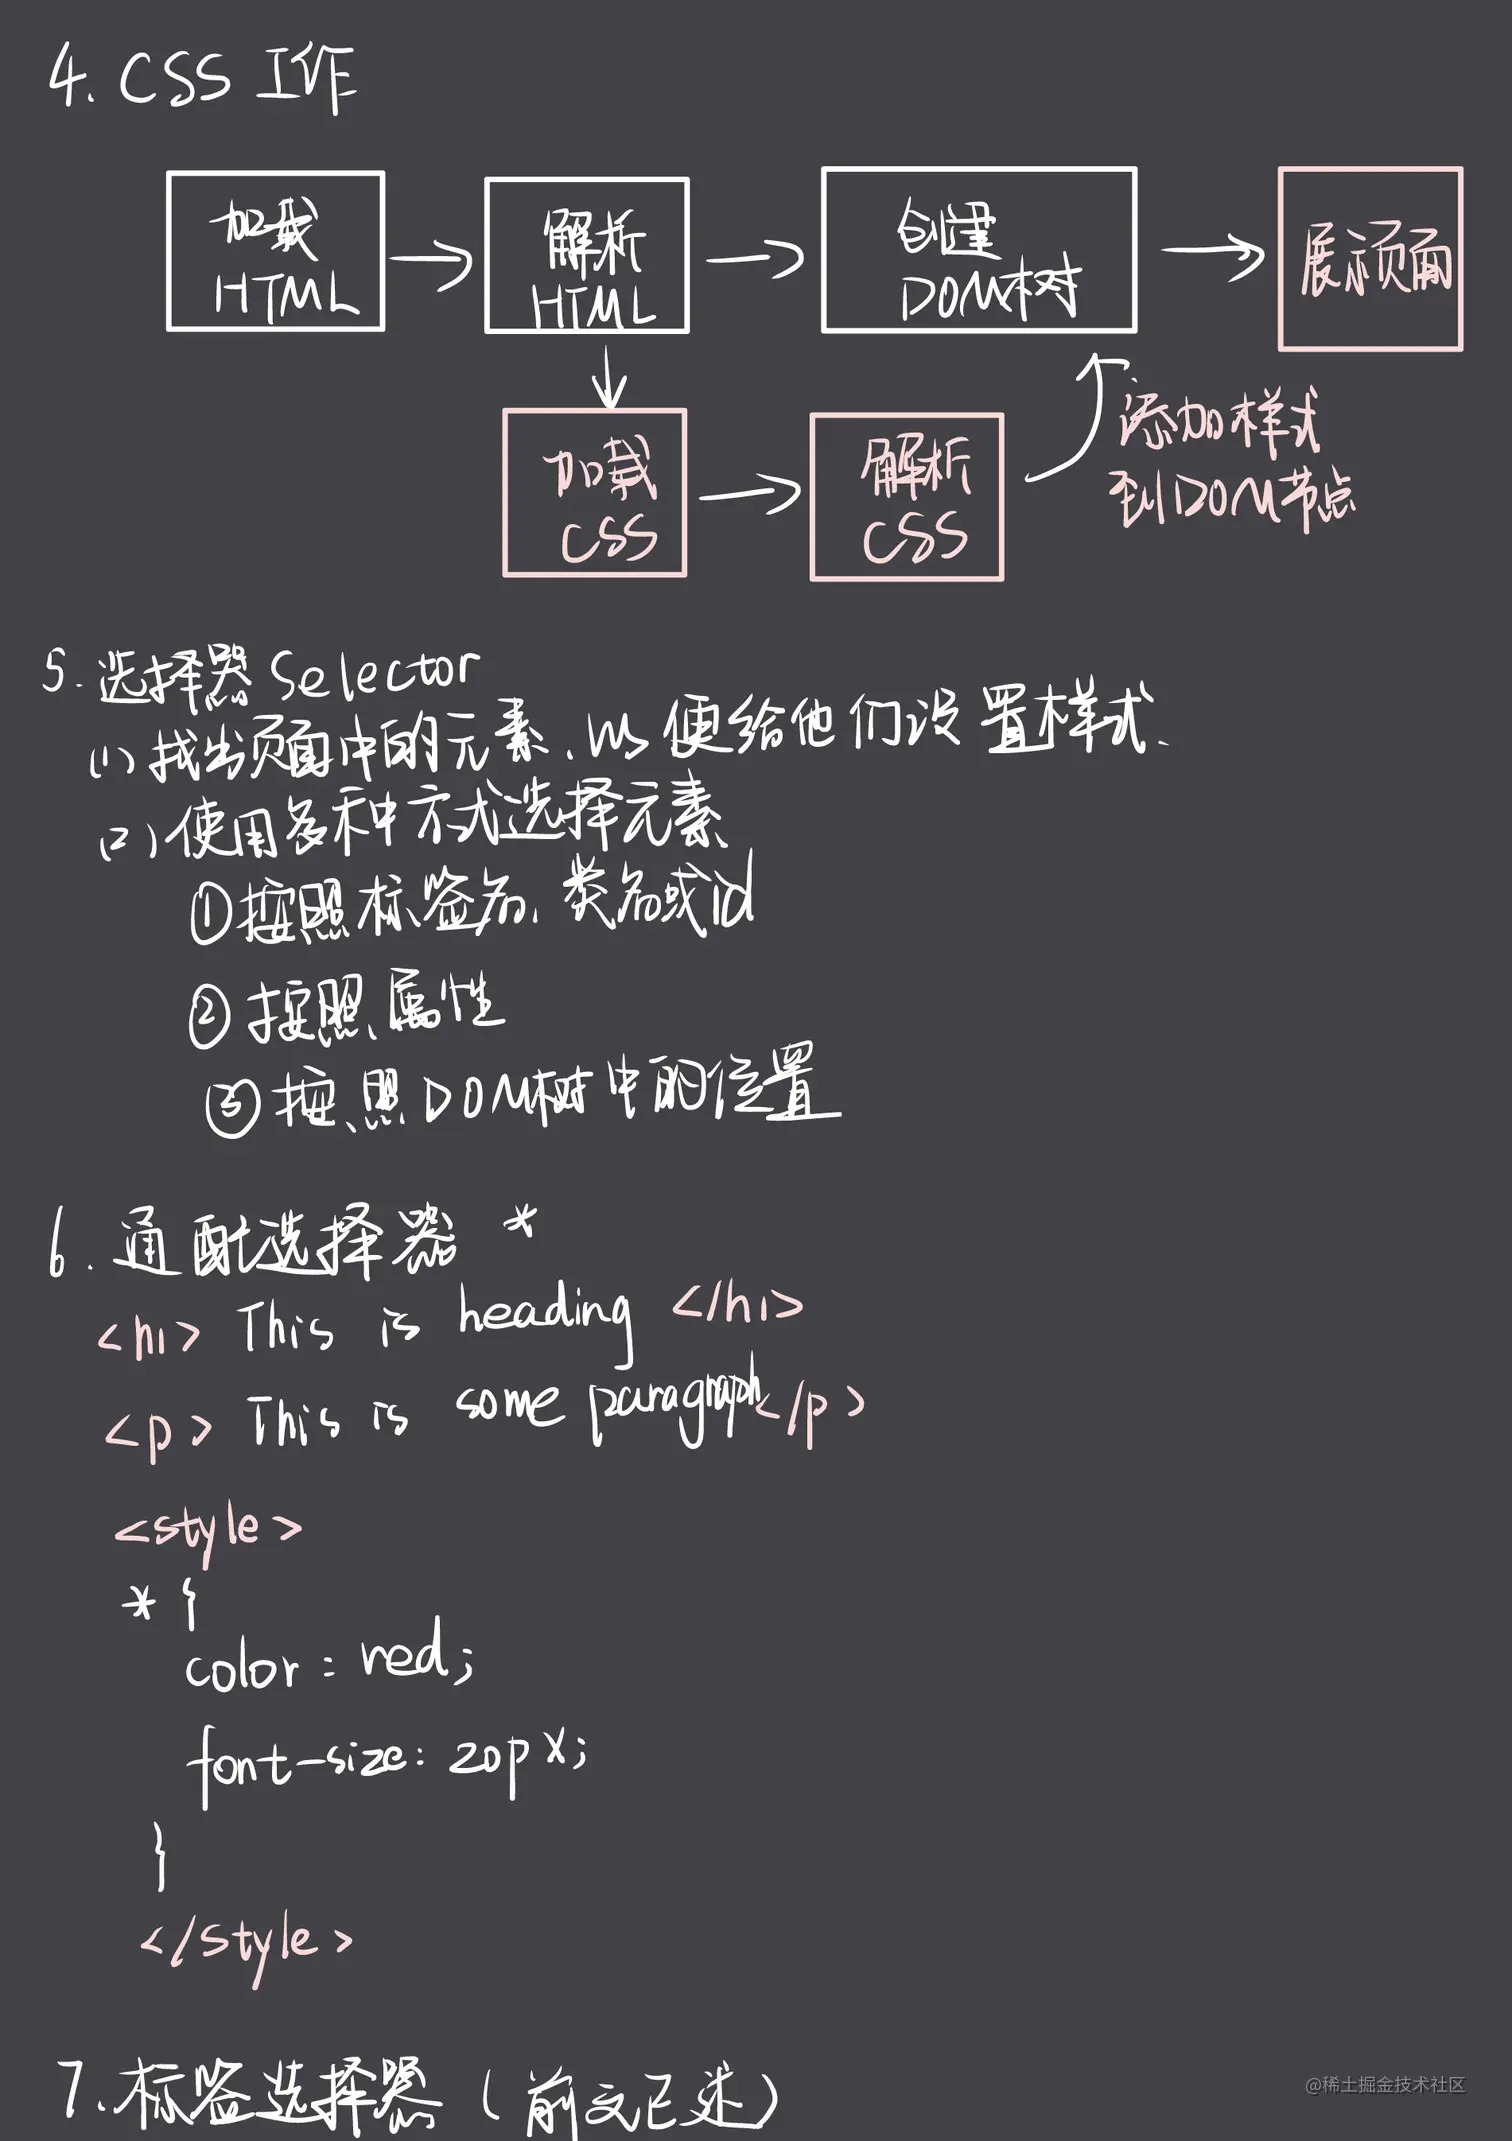 4. CSS 工作
加载
HTML
解析
HTML
创建
DOM树
展示页面
加载
CSS
解析
CSS
添加样式
到DOM节点
5. 选择器 Selector
(1) 找出页面中的元素、以便给他们设置样式、
(2) 使用多种方式选择元素
①按照标签名、类名或id
②按照属性
③按照DOM树中的位置
6. 通配选择器 *
<h1> This is heading </h1>
<p> This is some paragraph</p>
<style>
* {
color: red;
font-size: 20px;
}
</style>
7. 标签选择器 (前文已述)
@稀土掘金技术社区